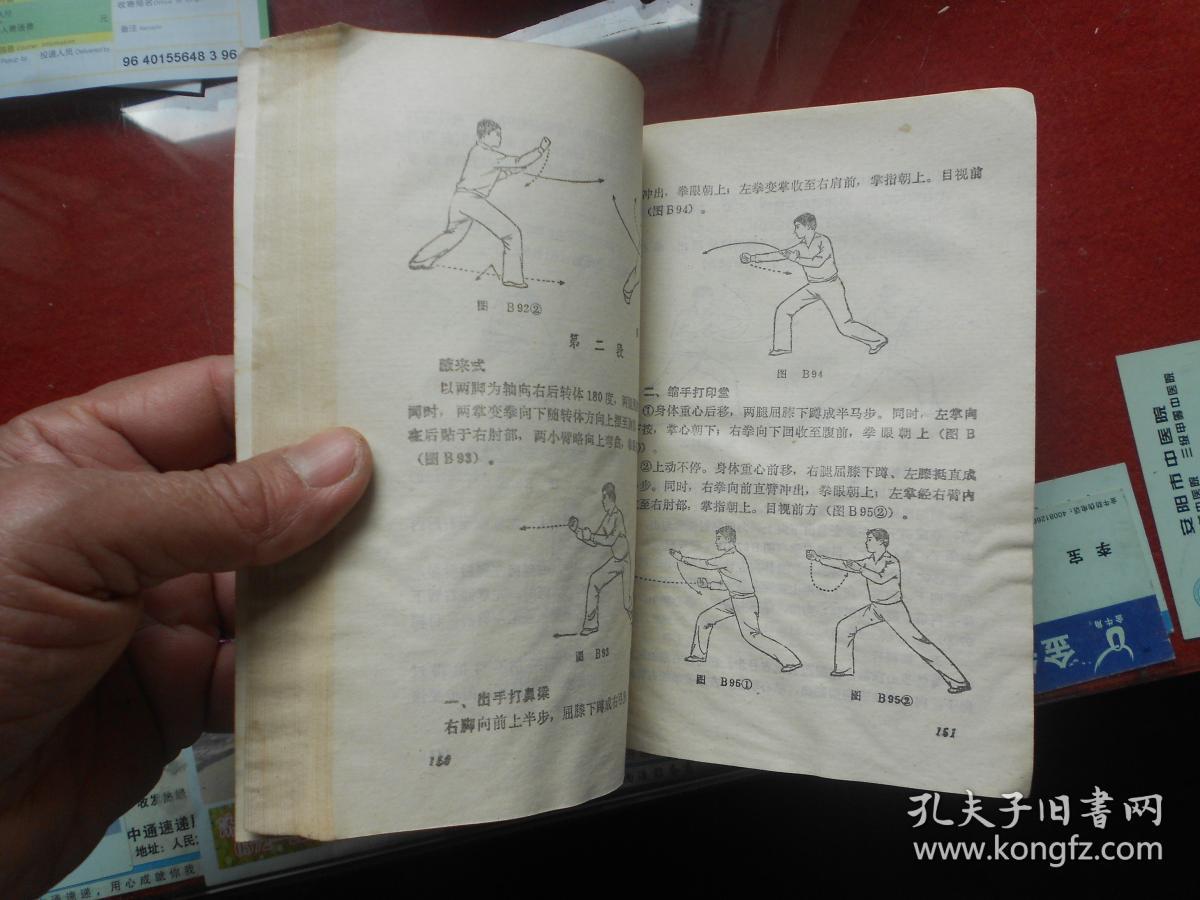 收寄局名
备注
元
投递人员 Delivered by
96 40155648 3 96
图 B92②
第 二 段
以两脚为轴向右后转体180度,两
同时,两掌变拳向下随转体方向上摆至
在后贴于右肘部,两小臂略向上弯曲,
(图B93)。
图 B93
一、出手打鼻梁
右脚向前上半步,屈膝下蹲成右
150
冲出,拳眼朝上;左拳变掌收至右肩前,掌指朝上。目视前
(图B94)。
图 B94
二、缩手打印堂
①身体重心后移,两腿屈膝下蹲成半马步。同时,左掌向
按,掌心朝下;右拳向下回收至腹前,拳眼朝上(图B
)。
②上动不停。身体重心前移,右腿屈膝下蹲、左膝挺直成
步。同时,右拳向前直臂冲出,拳眼朝上;左掌经右臂内
至右肘部,掌指朝上。目视前方(图B95②)。
图 B95①
图 B95②
151
安阳市中医院
三级甲等中医院
李 宝
金牛
金
中通速递
地址:人民
速递,用心成就你我
孔夫子旧书网
www.kongfz.com